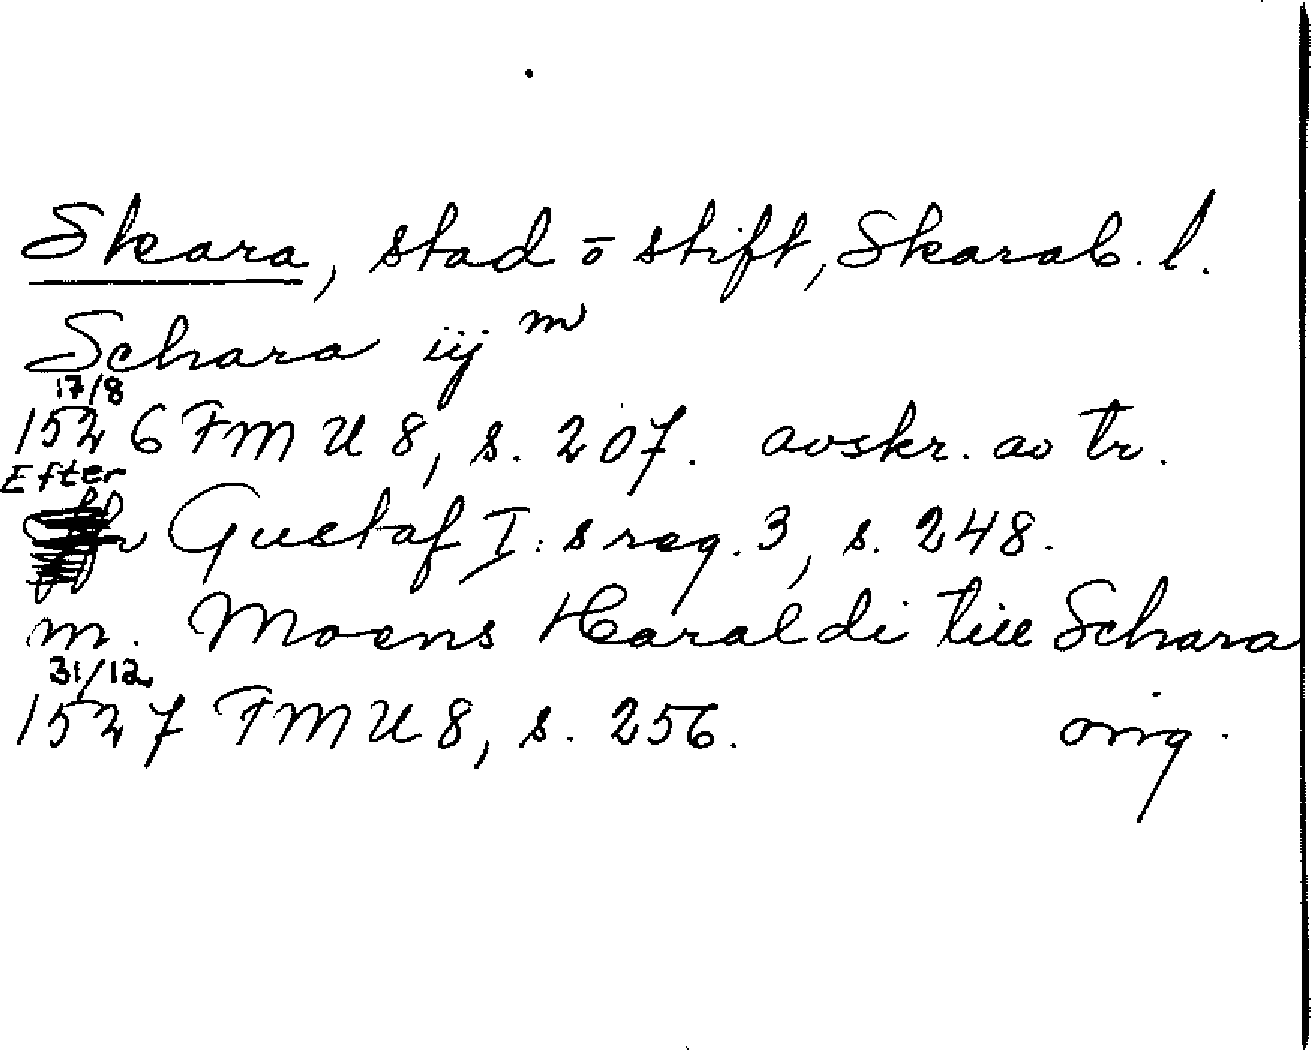 Skara, stad o stift, Skarab. l.
Schara iij m
17/8
1526 FMU 8, s. 207. avskr. av tr.
Efter
Gustaf I:s reg. 3, s. 248.
m. Moens Haraldi till Schara
31/12
1527 FMU 8, s. 256. orig.